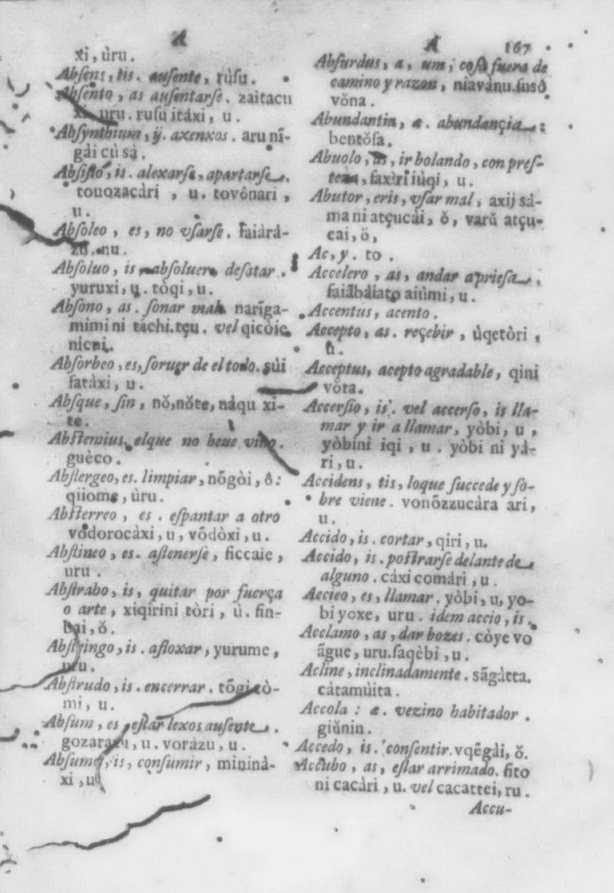 A
xi, ùru.
Absens, tis. ausente, rùsu.
Absento, as ausentarse. zaitacu
xi. uru. rusu itáxi, u.
Absynthium, ij. axenxos. aru nī-
gái cù sà.
Absisto, is. alexarse, apartarse.
touozacàri, u. tovônari,
u.
Absoleo, es, no vsarse. faiàrá-
zu. nu.
Absoluo, is, absoluere desatar.
yuruxi, u. tòqi, u.
Absono, as. sonar mal. narīga-
mimi ni táchi. tçu. vel qicòie
nicui.
Absorbeo, es, soruer de el todo. sùi
fatàxi, u.
Absque, sin, nŏ, nŏte, nàqu xi-
te.
Abstemius, elque no beue vino.
guèco.
Abstergeo, es. limpiar, nŏgòi, ô:
qiiome, ùru.
Absterreo, es. espantar a otro
vòdorocàxi, u, vōdòxi, u.
Abstineo, es. astenerse, ficcaie,
uru.
Abstrabo, is, quitar por fuerça
o arte, xiqirini tòri, ù. fin-
bai, ŏ.
Abstringo, is. afloxar, yurume,
uru.
Abstrudo, is. encerrar. tŏgi cò-
mi, u.
Absum, es, estar lexos ausente.
gozarazu, u. vorázu, u.
Absumo, is, consumir, mininà-
xi, u.
A 167
Absurdus, a, um, cosa fuera de
camino y razon, niavánu. susŏ
vŏna.
Abundantia, æ. abundançia:
bentŏsa.
Abuolo, as, ir bolando, con pres-
teza, faxiri iúqi, u.
Abutor, eris, vsar mal, axij sá-
ma ni atçucái, ŏ, varŭ atçu-
cai, ŏ,
Ac, y. to.
Accelero, as, andar apriesa,
faiàbàiato aiúmi, u.
Accentus, acento.
Accepto, as. reçebir, ùqetòri,
u.
Acceptus, acepto agradable, qini
vòta.
Accersio, is. vel accerso, is lla-
mar y ir a llamar, yòbi, u,
yòbini iqi, u. yòbi ni yá-
ri, u.
Accidens, tis, loque succede y so-
bre viene. vonōzzucàra ari,
u.
Accido, is. cortar, qiri, u.
Accido, is. postrarse delante de
alguno. càxi comàri, u.
Accieo, es, llamar. yòbi, u, yo-
bi yoxe, uru. idem accio, is.
Acclamo, as, dar bozes. còye vo
āgue, uru. saqèbi, u.
Acline, inclinadamente. sāgàtta.
càtamùita.
Accola: æ. vezino habitador.
giŭnin.
Accedo, is. consentir. vqēgài, ŏ.
Accubo, as, estar arrimado. fito
ni cacàri, u. vel cacattei, ru.
Accu-